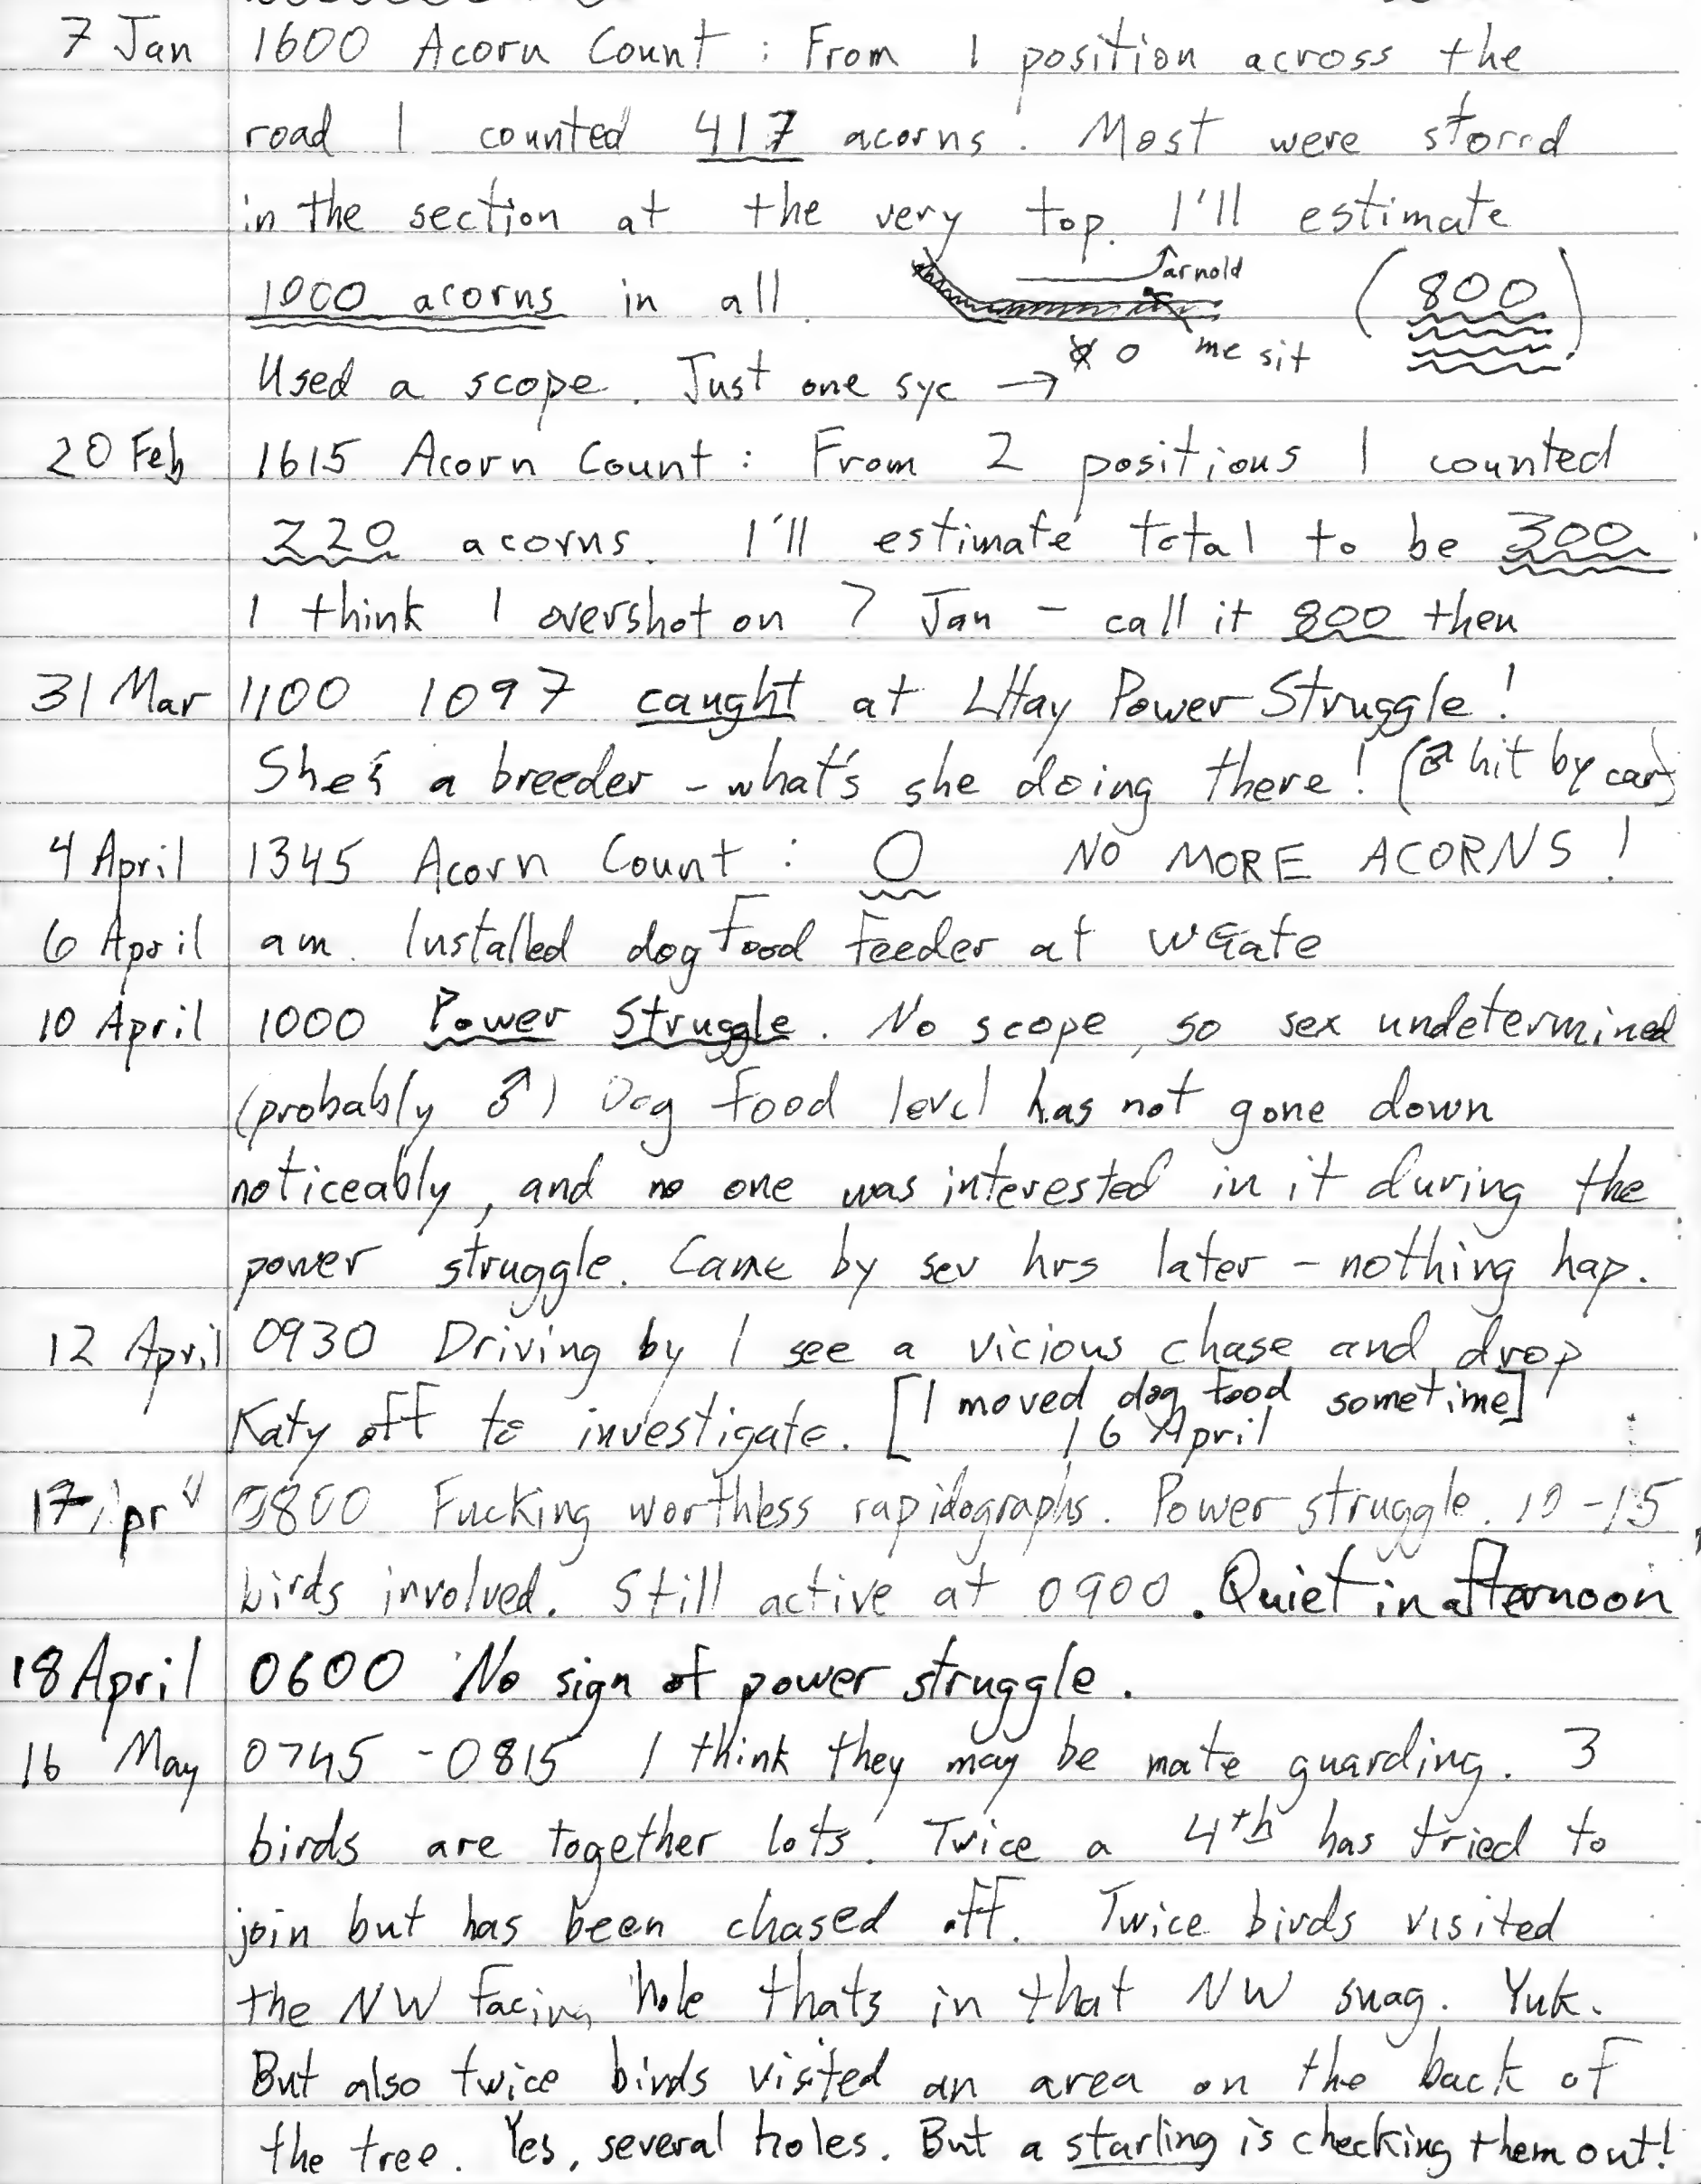 7 Jan 1600 Acorn Count : From 1 position across the
road I counted 417 acorns. Most were stored
in the section at the very top. I'll estimate
1000 acorns in all. arnold (800)
O me sit
Used a scope. Just one syc →
20 Feb 1615 Acorn Count : From 2 positions I counted
220 acorns. I'll estimate total to be 300
I think I overshot on 7 Jan - call it 800 then
31 Mar 1100 1097 caught at LHay Power Struggle!
She's a breeder - what's she doing there! (♂ hit by car)
4 April 1345 Acorn Count : 0 NO MORE ACORNS!
6 April am. Installed dog food feeder at WGate
10 April 1000 Power Struggle. No scope, so sex undetermined
(probably ♂) Dog food level has not gone down
noticeably, and no one was interested in it during the
power struggle. Came by sev hrs later - nothing hap.
12 April 0930 Driving by I see a vicious chase and drop
Katy off to investigate. [I moved dog food sometime]
16 April
17 Apr 0800 Fucking worthless rapidographs. Power struggle. 10-15
birds involved. Still active at 0900. Quiet in afternoon
18 April 0600 No sign of power struggle.
16 May 0745-0815 I think they may be mate guarding. 3
birds are together lots. Twice a 4th has tried to
join but has been chased off. Twice birds visited
the NW facing hole thats in that NW snag. Yuk.
But also twice birds visited an area on the back of
the tree. Yes, several holes. But a starling is checking them out!